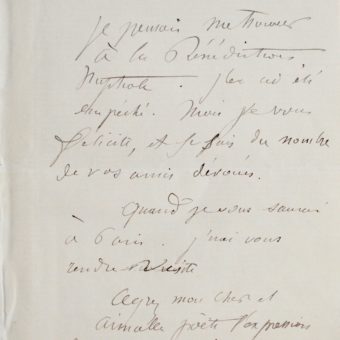 je pensais me trouver
à la Bénédiction
Nuptiale. j'en ai été
empêché. Mais je vous
félicite, et je suis du nombre
de vos amis dévoués.
Quand je vous saurai
à Paris. j'irai vous
rendre visite
Agréez mon cher et
aimable poète l'expression